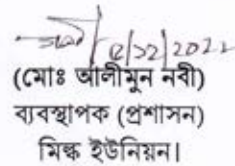 ৫/১২/২০২২
(মোঃ আলীমুন নবী)
ব্যবস্থাপক (প্রশাসন)
মিল্ক ইউনিয়ন।